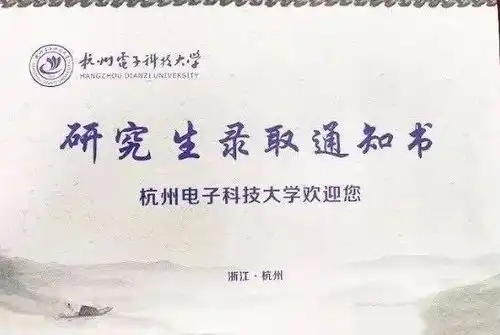 杭州电子科技大学
HANGZHOU DIANZI UNIVERSITY
研究生录取通知书
杭州电子科技大学欢迎您
浙江·杭州